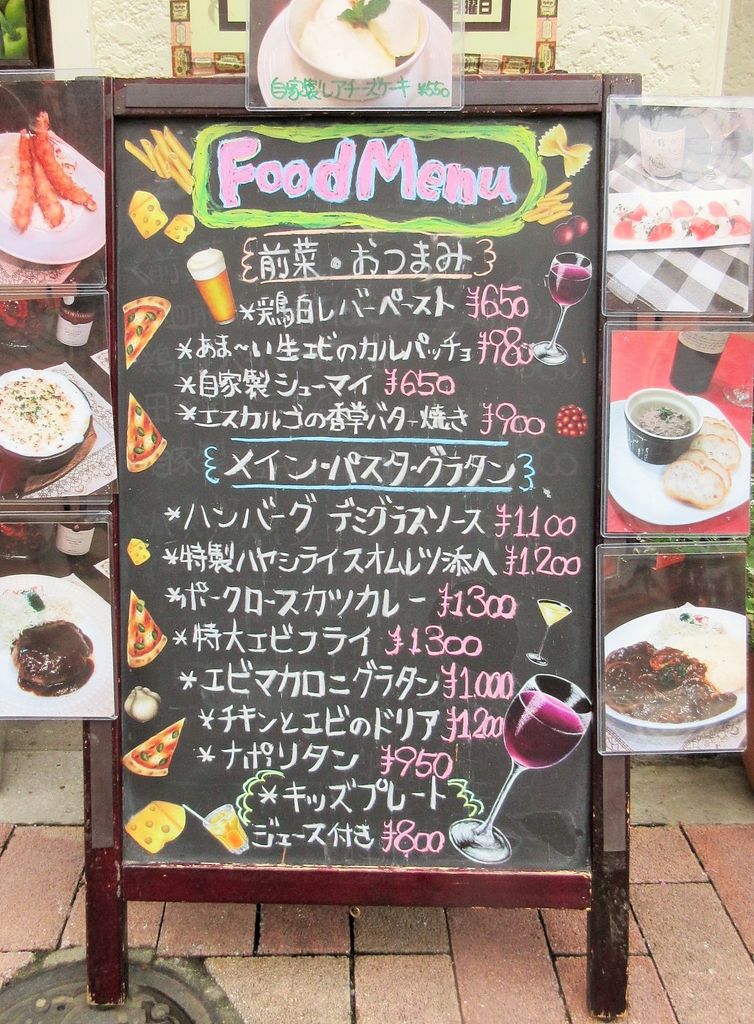 曜日
自家製レアチーズケーキ ¥550
Food Menu
前菜・おつまみ
*鶏白レバーペースト ¥650
*あま〜い生エビのカルパッチョ ¥980
*自家製シューマイ ¥650
*エスカルゴの香草バター焼き ¥900
メイン・パスタ・グラタン
*ハンバーグ デミグラスソース ¥1100
*特製ハヤシライスオムレツ添へ ¥1.200
*ポークロースカツカレー ¥1300
*特大エビフライ ¥1300
*エビマカロニグラタン ¥1.000
*チキンとエビのドリア ¥1200
*ナポリタン ¥950
*キッズプレート
ジュース付き ¥800